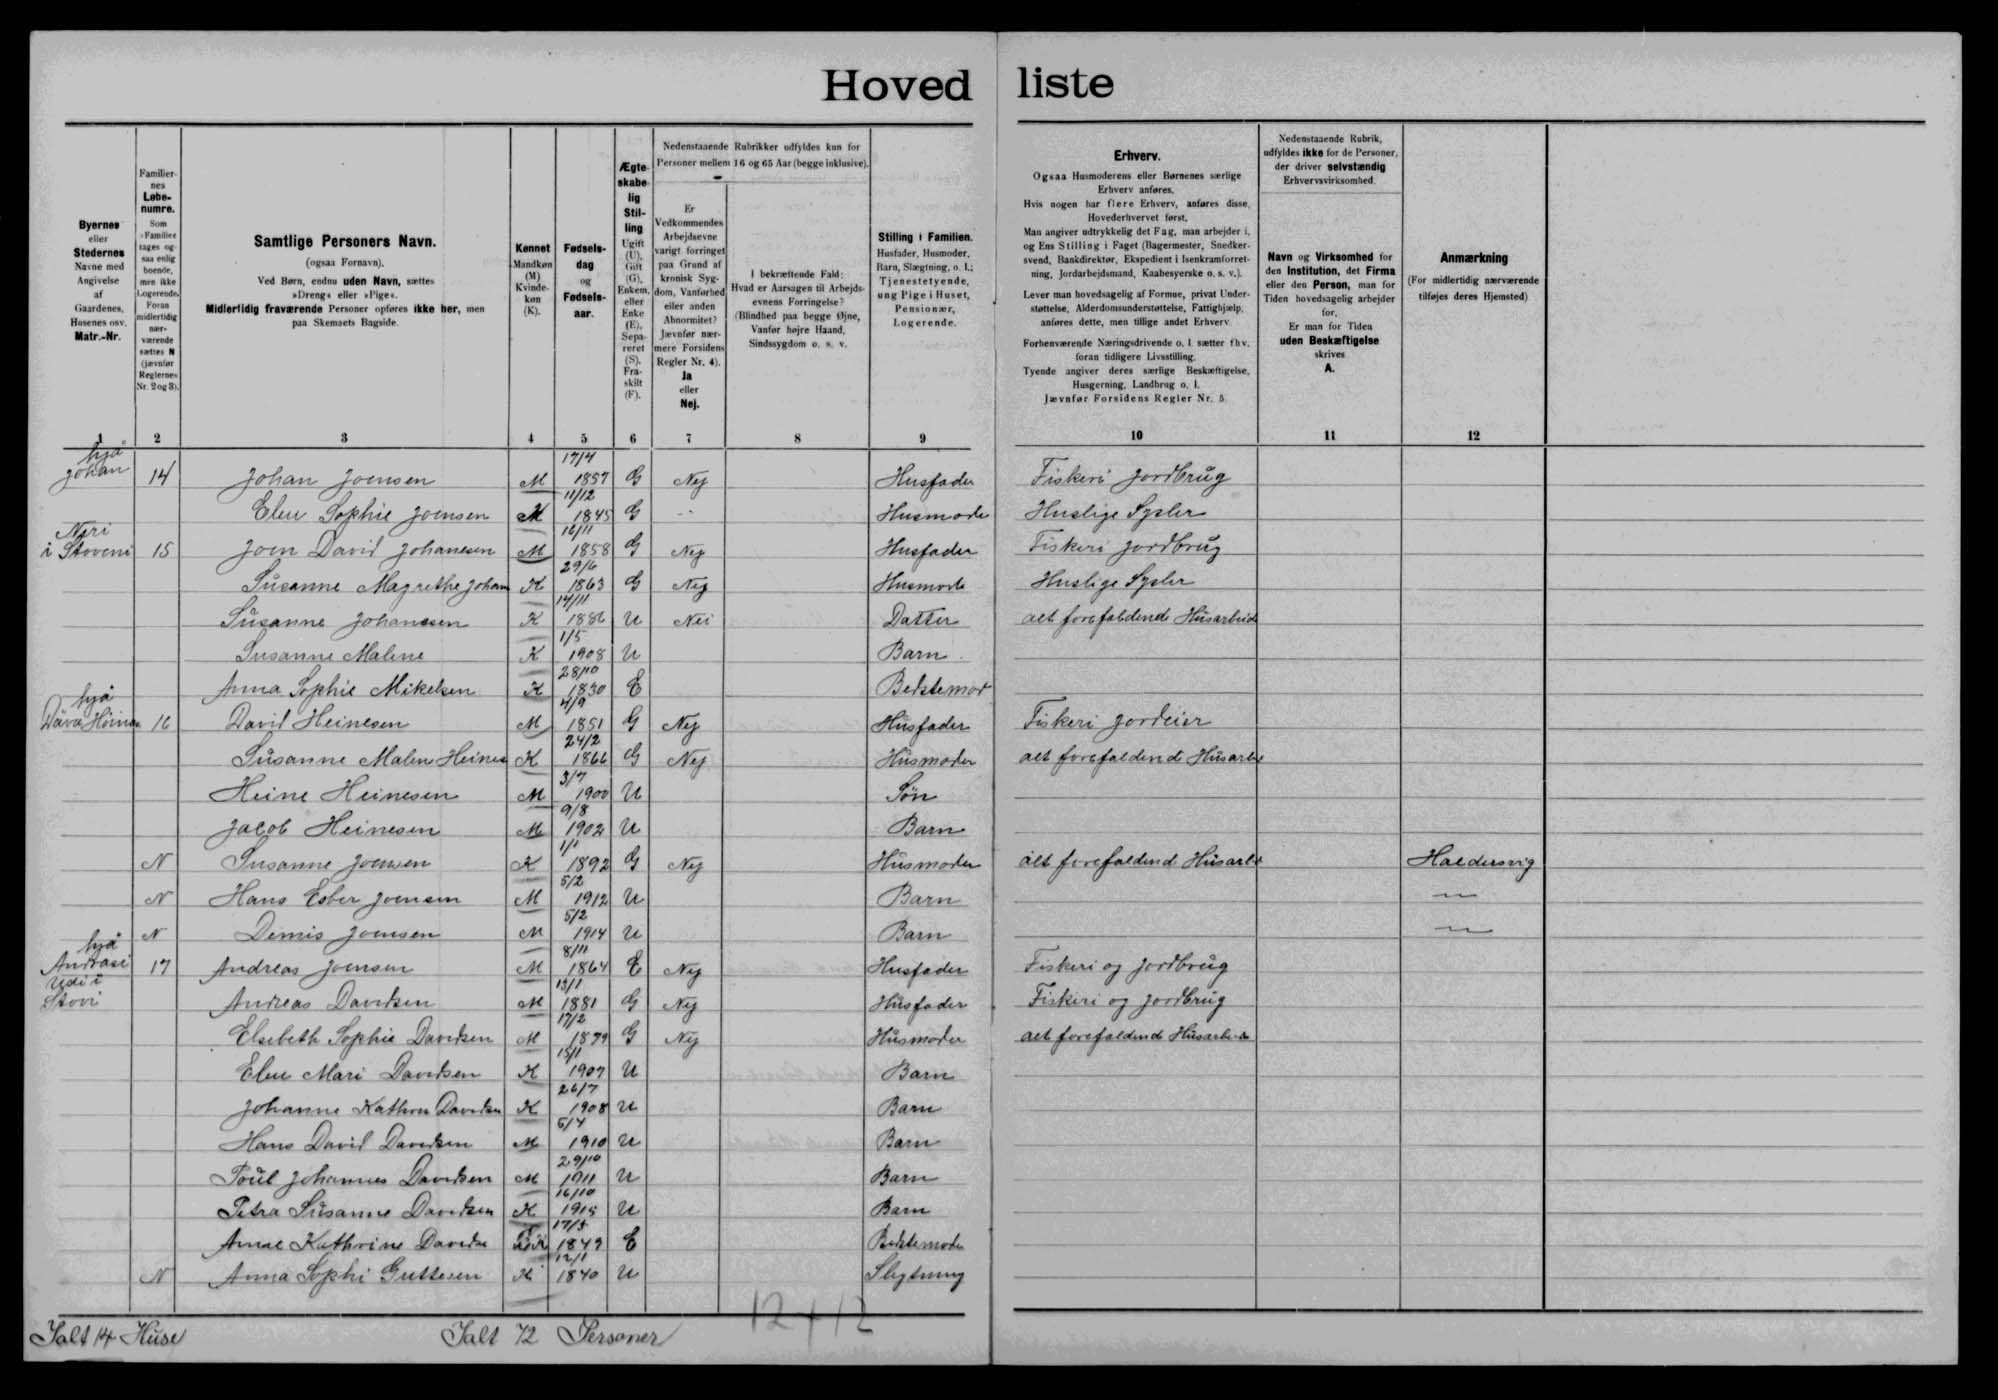 Hoved liste
Byernes
eller
Stedernes
Navne med
Angivelse
af
Gaardenes,
Husenes osv.
Matr.-Nr.
Familier-
nes
Løbe-
numre.
Som
»Familie«
tages og-
saa enlig
boende,
men ikke
Logerende.
Foran
midlertidig
nær-
værende
sættes N
(jævnfør
Reglernes
Nr. 2 og 3).
Samtlige Personers Navn.
(ogsaa Fornavn).
Ved Børn, endnu uden Navn, sættes
»Dreng« eller »Pige«.
Midlertidig fraværende Personer opføres ikke her, men
paa Skemaets Bagside.
Kønnet
Mandkøn
(M)
Kvinde-
køn
(K).
Fødsels-
dag
og
Fødsels-
aar.
Ægte-
skabe-
lig
Stil-
ling
Ugift
(U),
Gift
(G),
Enkem.
eller
Enke
(E),
Sepa-
reret
(S),
Fra-
skilt
(F).
Nedenstaaende Rubrikker udfyldes kun for
Personer mellem 16 og 65 Aar (begge inklusive).
Er
Vedkommendes
Arbejdsevne
varigt forringet
paa Grund af
kronisk Syg-
dom, Vanførhed
eller anden
Abnormitet?
Jævnfør nær-
mere Forsidens
Regler Nr. 4).
Ja
eller
Nej.
I bekræftende Fald:
Hvad er Aarsagen til Arbejds-
evnens Forringelse?
(Blindhed paa begge Øjne,
Vanfør højre Haand,
Sindssygdom o. s. v.
Stilling i Familien.
Husfader, Husmoder,
Barn, Slægtning, o. l.;
Tjenestetyende,
ung Pige i Huset,
Pensionær,
Logerende.
Erhverv.
Ogsaa Husmoderens eller Børnenes særlige
Erhverv anføres.
Hvis nogen har flere Erhverv, anføres disse,
Hovederhvervet først.
Man angiver udtrykkelig det Fag, man arbejder i,
og Ens Stilling i Faget (Bagermester, Snedker-
svend, Bankdirektør, Ekspedient i Isenkramforret-
ning, Jordarbejdsmand, Kaabesyerske o. s. v.).
Lever man hovedsagelig af Formue, privat Under-
støttelse, Alderdomsunderstøttelse, Fattighjælp,
anføres dette, men tillige andet Erhverv
Forhenværende Næringsdrivende o. l. sætter fhv.
foran tidligere Livsstilling.
Tyende angiver deres særlige Beskæftigelse,
Husgerning, Landbrug o. l.
Jævnfør Forsidens Regler Nr. 5.
Nedenstaaende Rubrik,
udfyldes ikke for de Personer,
der driver selvstændig
Erhvervsvirksomhed.
Navn og Virksomhed for
den Institution, det Firma
eller den Person, man for
Tiden hovedsagelig arbejder
for,
Er man for Tiden
uden Beskæftigelse
skrives
A.
Anmærkning
(For midlertidig nærværende
tilføjes deres Hjemsted)
1 2 3 4 5 6 7 8 9 10 11 12
hjå
Johan 14 Johan Joensen M 17/4 1857 G Nej Husfader Fiskeri Jordbrug
Elen Sophie Joensen K 11/12 1845 G Husmode Huslige Sysler
Neri
i Stoveni 15 Joen David Johanesen M 16/11 1858 G Nej Husfader Fiskeri Jordbrug
Susanne Magrethe Johan K 29/6 1863 G Nej Husmode Huslige Sysler
Susanne Johanesen K 14/11 1886 U Nei Datter alt forefaldende Husarbeid
Susanne Malene K 1/5 1908 U Barn
Anna Sophie Mikelsen K 28/10 1830 E Bedstemod
hjå
Dåva Heines 16 David Heinesen M 4/9 1851 G Nej Husfader Fiskeri Jordeier
Susanne Malen Heines K 24/2 1866 G Nej Husmoder alt forefaldend Husarbe
Heine Heinesen M 3/7 1900 U Søn
Jacob Heinesen M 9/8 1902 U Barn
N Susanne Joensen K 1/1 1892 G Nej Husmoder alt forefaldend Husarbe Haldersvig
N Hans Esber Joensen M 5/2 1912 U Barn
N Demis Joensen M 5/2 1914 U Barn
hjå
Andrasi 17 Andreas Joensen M 8/11 1864 E Nej Husfader Fiskeri og Jordbrug
Stovi Andreas Davidsen M 1881 G Nej Husfader Fiskeri og Jordbrug
Elsebeth Sophie Davidsen M 17/2 1879 G Nej Husmoder alt forefaldend Husarbeide
Elen Mari Davidsen K 15/1 1907 U Barn
Johanne Kathrin Davidsen K 26/7 1908 U Barn
Hans David Davidsen M 5/4 1910 U Barn
Poul Johannes Davidsen M 29/10 1911 U Barn
Petra Susanne Davidsen K 16/10 1915 U Barn
Annae Kathrine Davidse K 1849 E Bedstemoder
N Anna Sophi Guttesen K 12/1 1840 U Slegtning
Ialt 14 Huse Ialt 72 Personer 12+12